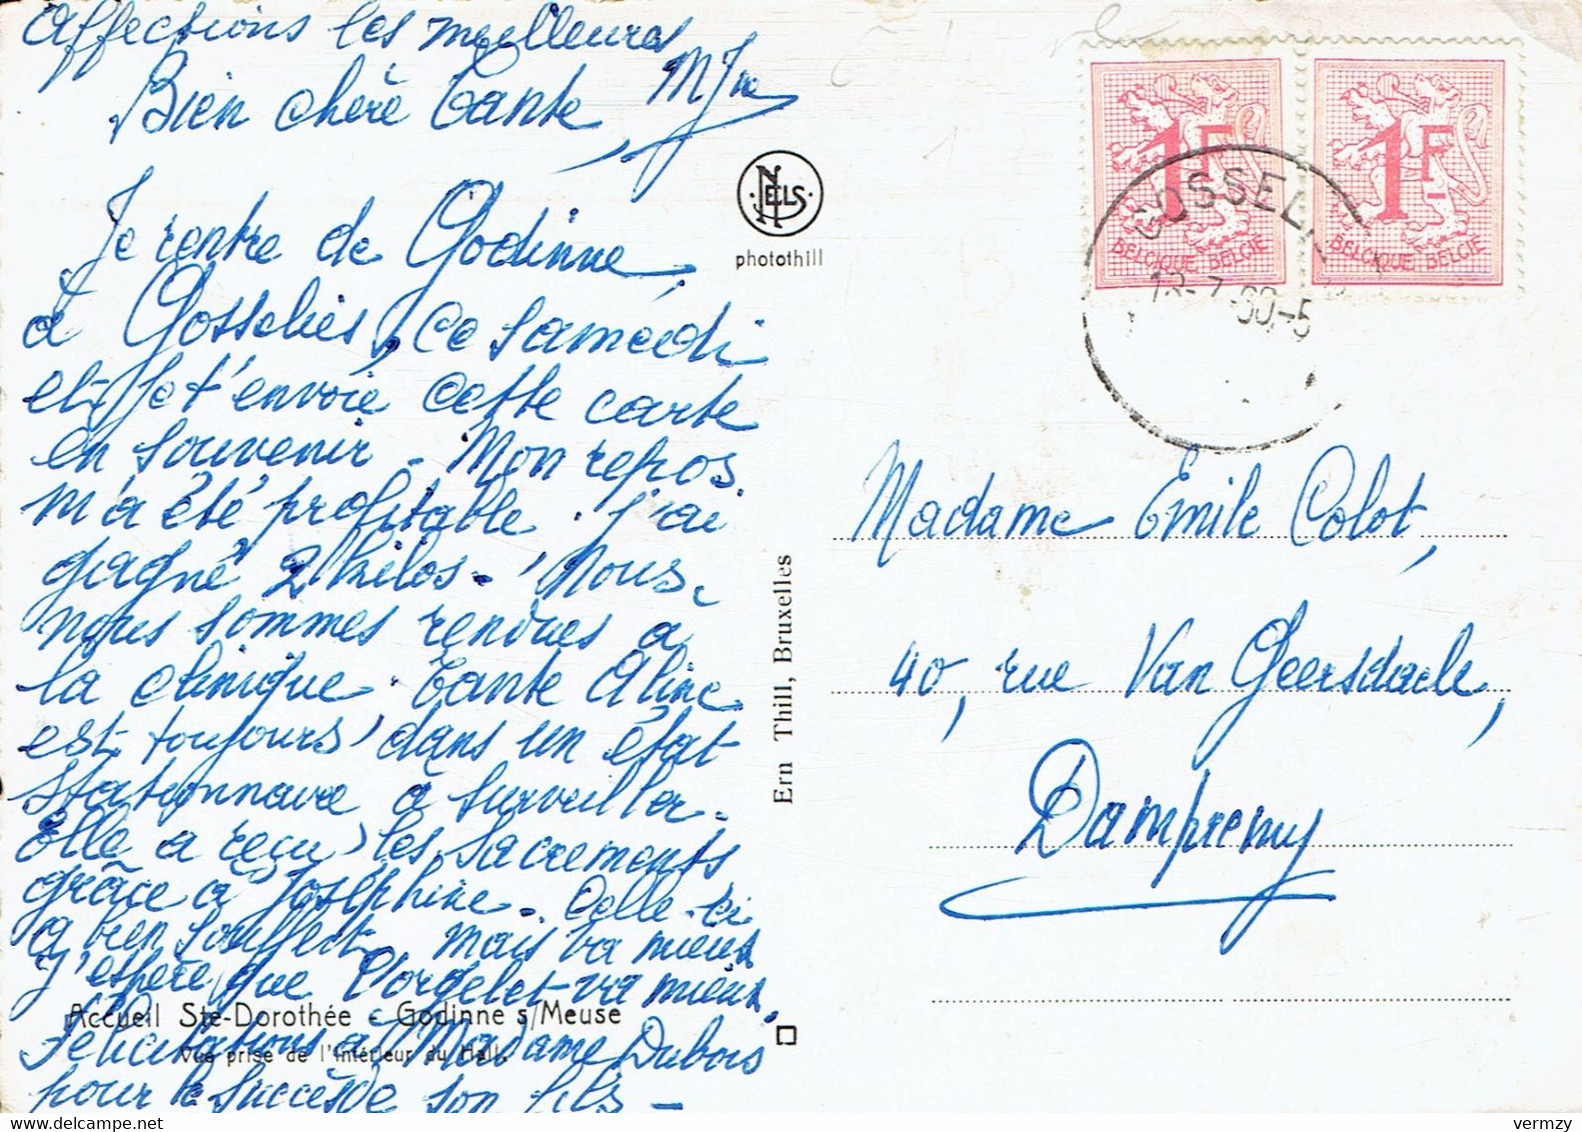 Affections les meilleures
Bien chère Tante
Je rentre de Godinne
à Gosselies, ce samedi
et je t'envoie cette carte
en souvenir. Mon repos
m'a été profitable. J'ai
gagné 2 kilos. Nous
nous sommes rendues à
la clinique. Tante Aline
est toujours dans un état
stationnaire à surveiller.
Elle a reçu les sacrements
grâce à Joséphine. Celle-ci
a bien souffert, mais va mieux
J'espère que l'orgelet va mieux.
Félicitations à Madame Dubois
pour le succès de son fils -
NELS
photothill
Ern Thill, Bruxelles
Accueil Ste-Dorothée - Godinne s/Meuse
Vue prise de l'intérieur du Hall.
1F
BELGIQUE BELGIE
1F
BELGIQUE BELGIE
Madame Emile Colot,
40, rue Van Geersdaele,
Dampremy
vermzy